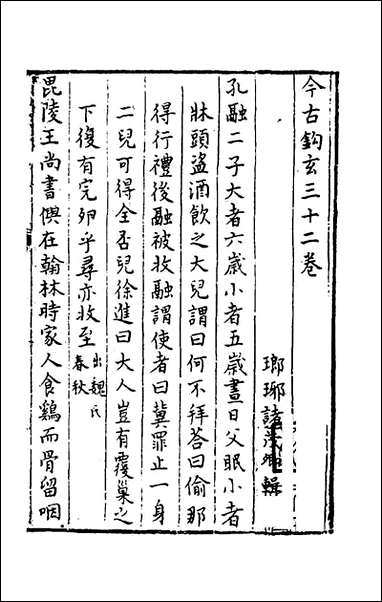 今古鈎玄三十二卷
瑯琊諸茂卿輯
孔融二子大者六歲小者五歲晝日父眠小者
牀頭盜酒飲之大兒謂曰何不拜荅曰偷那
得行禮後融被收融謂使者曰冀罪止一身
二兒可得全否兒徐進曰大人豈有覆巢之
下復有完卵乎尋亦收至出魏氏春秋
毘陵王尚書俱在翰林時家人食鷄而骨留咽